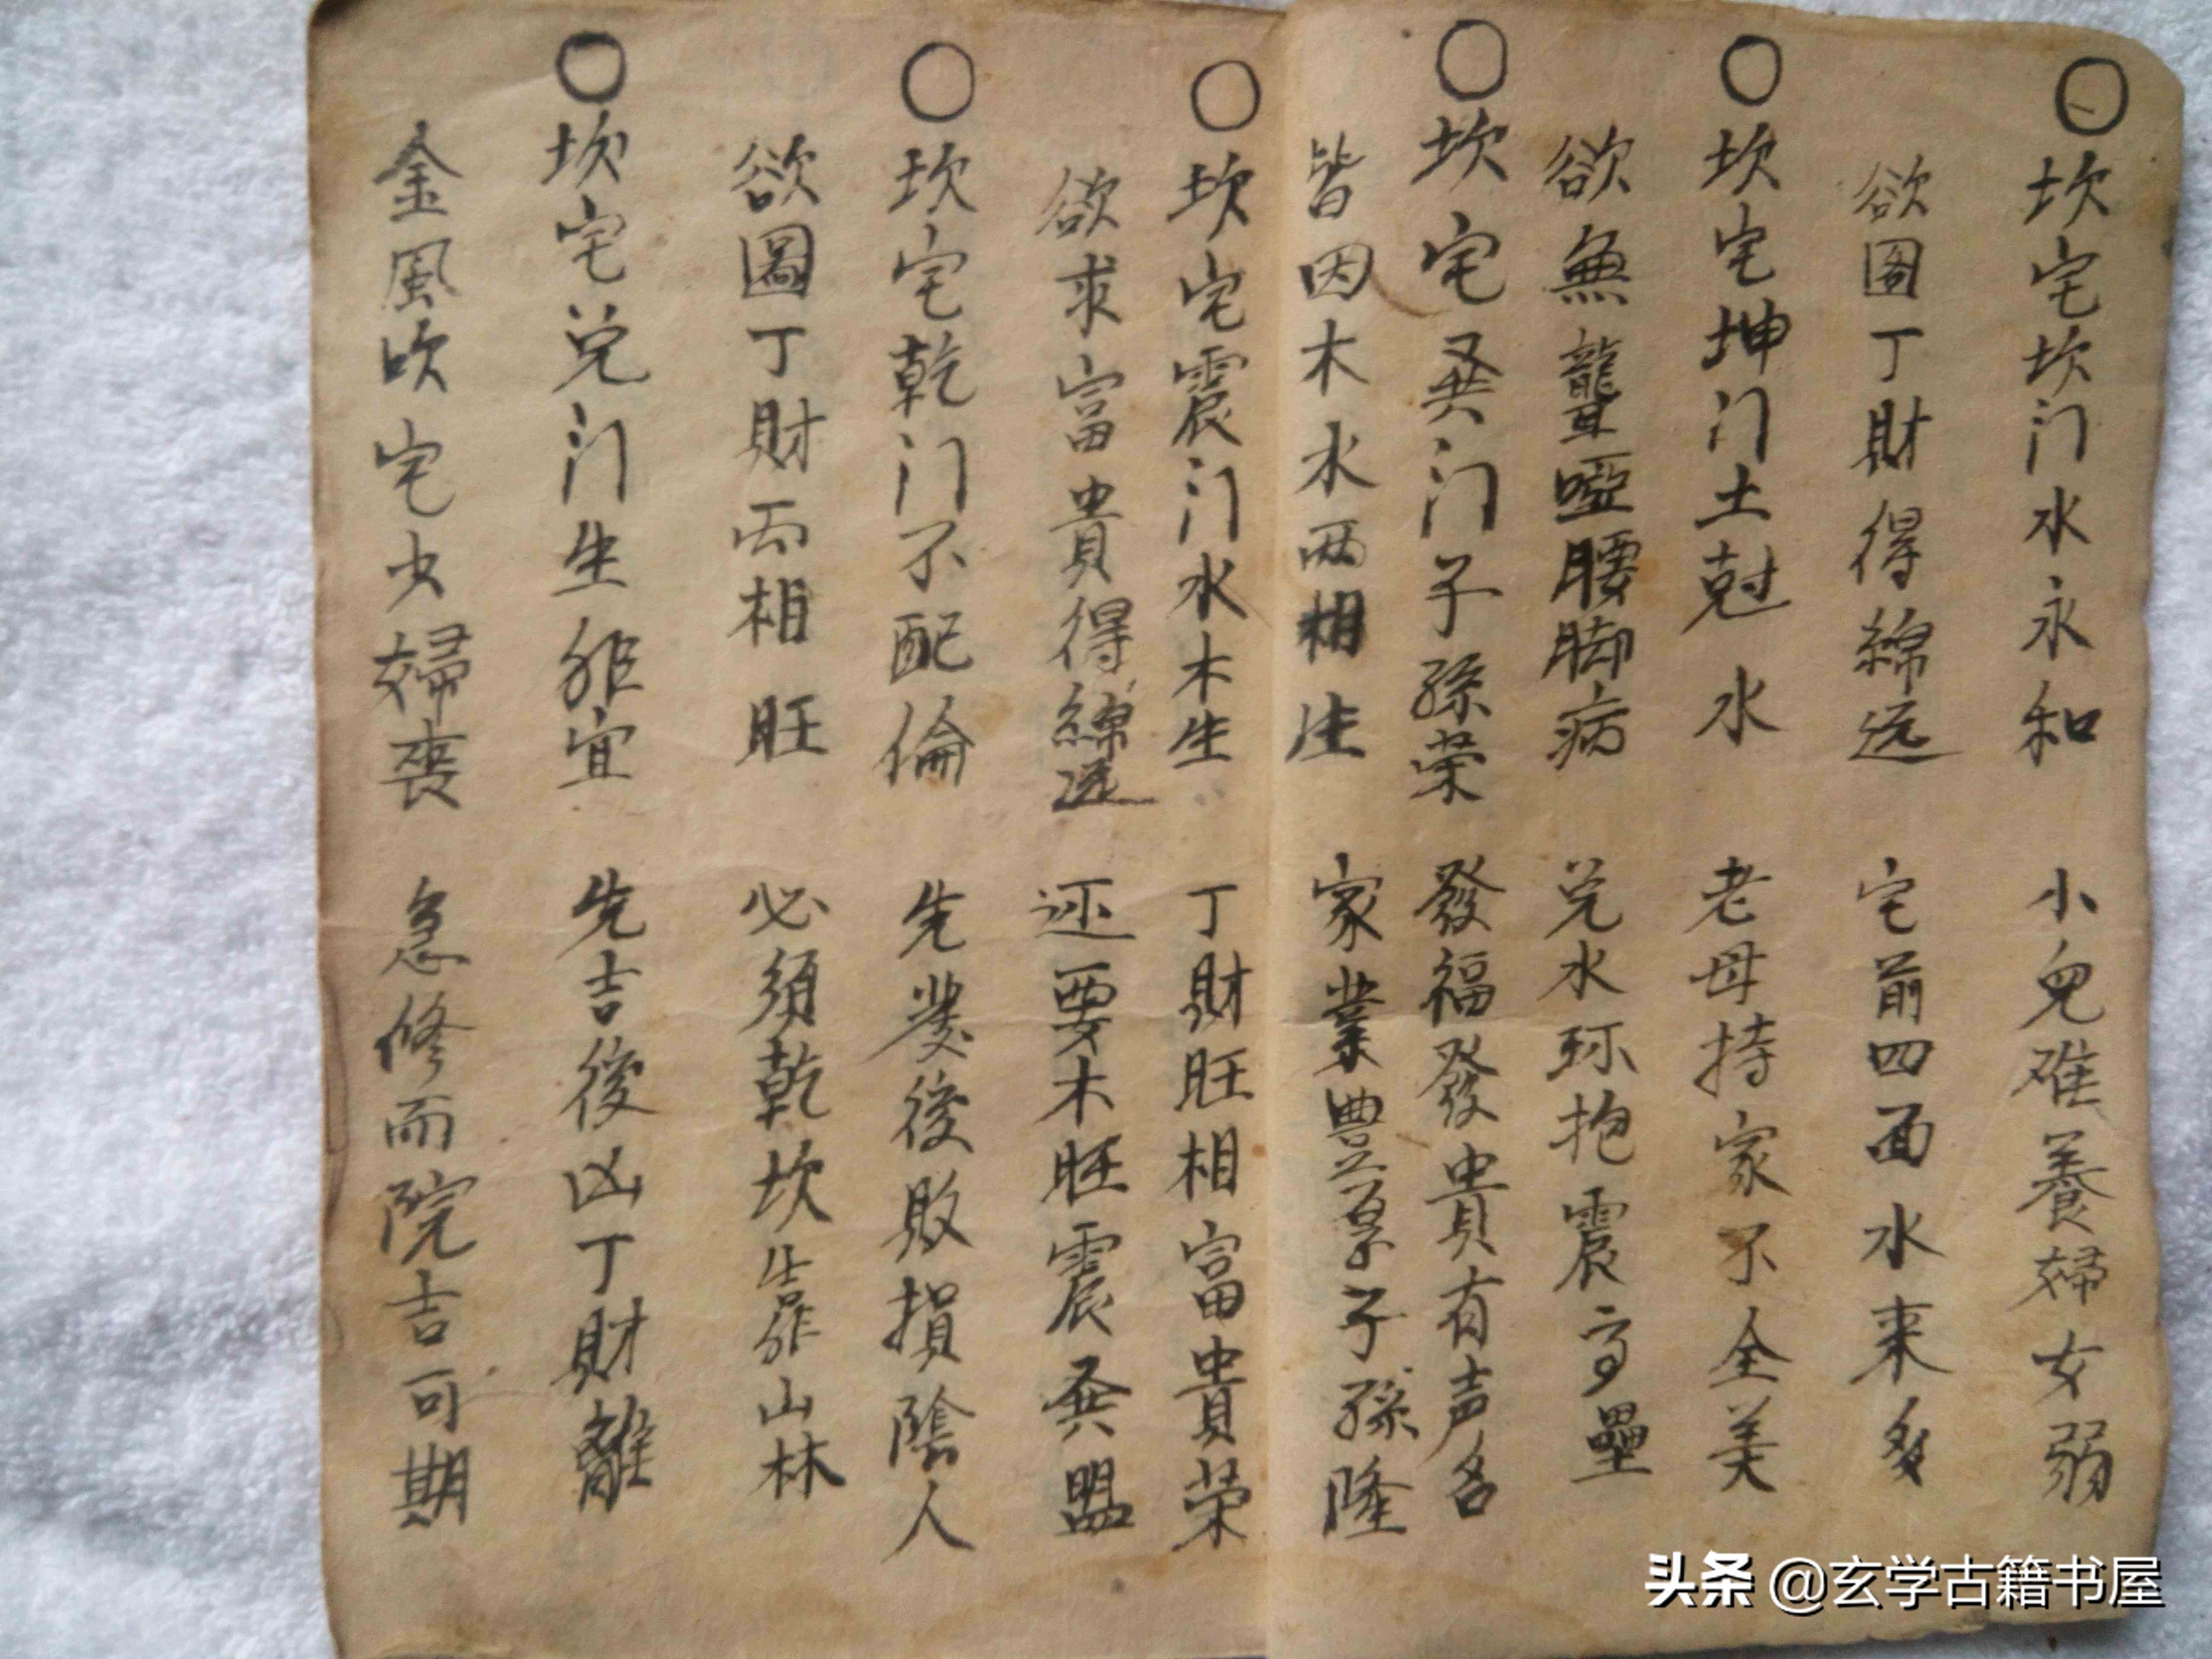 ○坎宅坎门水永和 小兒难養婦女弱
欲圖丁財得綿远 宅前四面水来多
○坎宅坤门土尅水 老母持家不全美
欲無聾啞腰脚病 兑水环抱震高壘
○坎宅巽门子孫荣 發福發貴有声名
皆因木水两相生 家業豊厚子孫隆
○坎宅震门水木生 丁財旺相富貴荣
欲求富貴得綿远 还要木旺震巽盟
○坎宅乾门不配倫 先發後敗損陰人
欲圖丁財两相旺 必須乾坎靠山林
○坎宅兑门生非宜 先吉後凶丁財離
金風吹宅少婦喪 急修而院吉可期
头条 @玄学古籍书屋